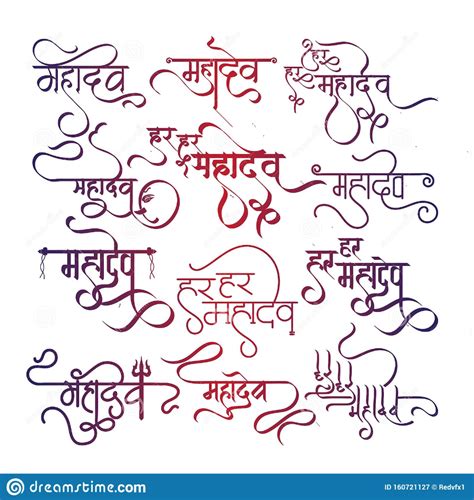 महादेव
महादेव
हर हर
महादेव
महादेव
हर हर
महादेव
महादेव
महादेव
हर हर
महादेव
हर हर
महादेव
महादेव
महादेव
हर हर
महादेव
dreamstime.com
ID 160721127 © Redvfx1